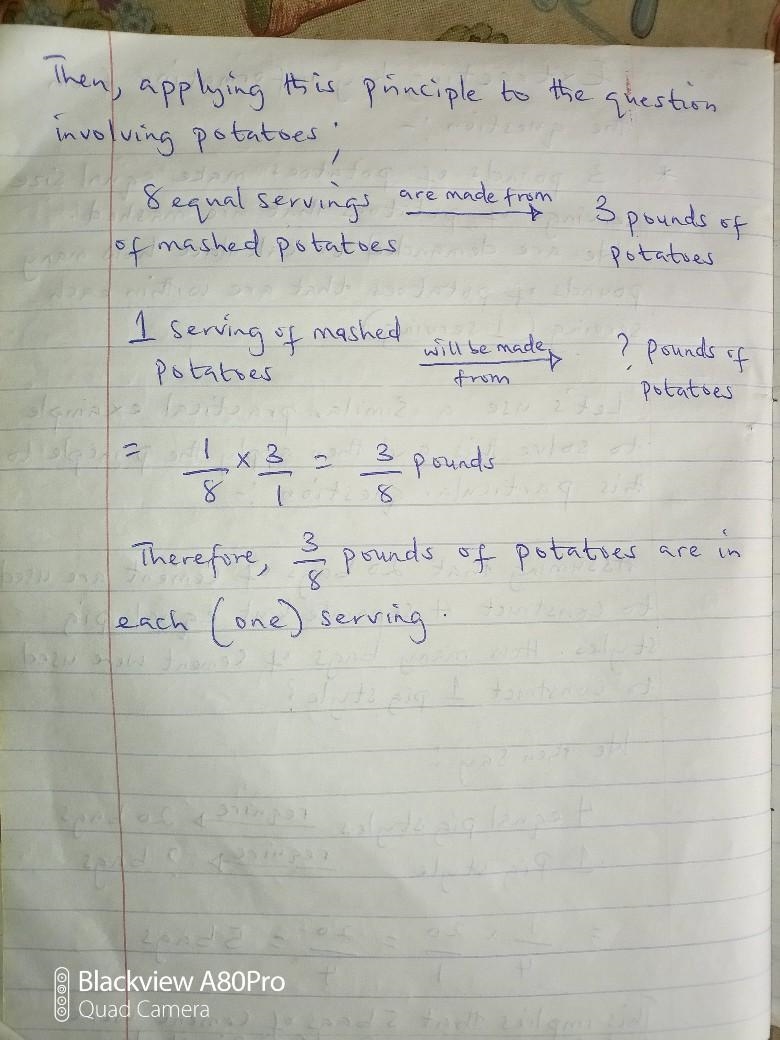 Then, applying this principle to the question
involving potatoes;
8 equal servings are made from 3 pounds of
of mashed potatoes potatoes
1 serving of mashed will be made ? pounds of
potatoes from potatoes
= 1/8 x 3/1 = 3/8 pounds
Therefore, 3/8 pounds of potatoes are in
each (one) serving.
Blackview A80Pro
Quad Camera